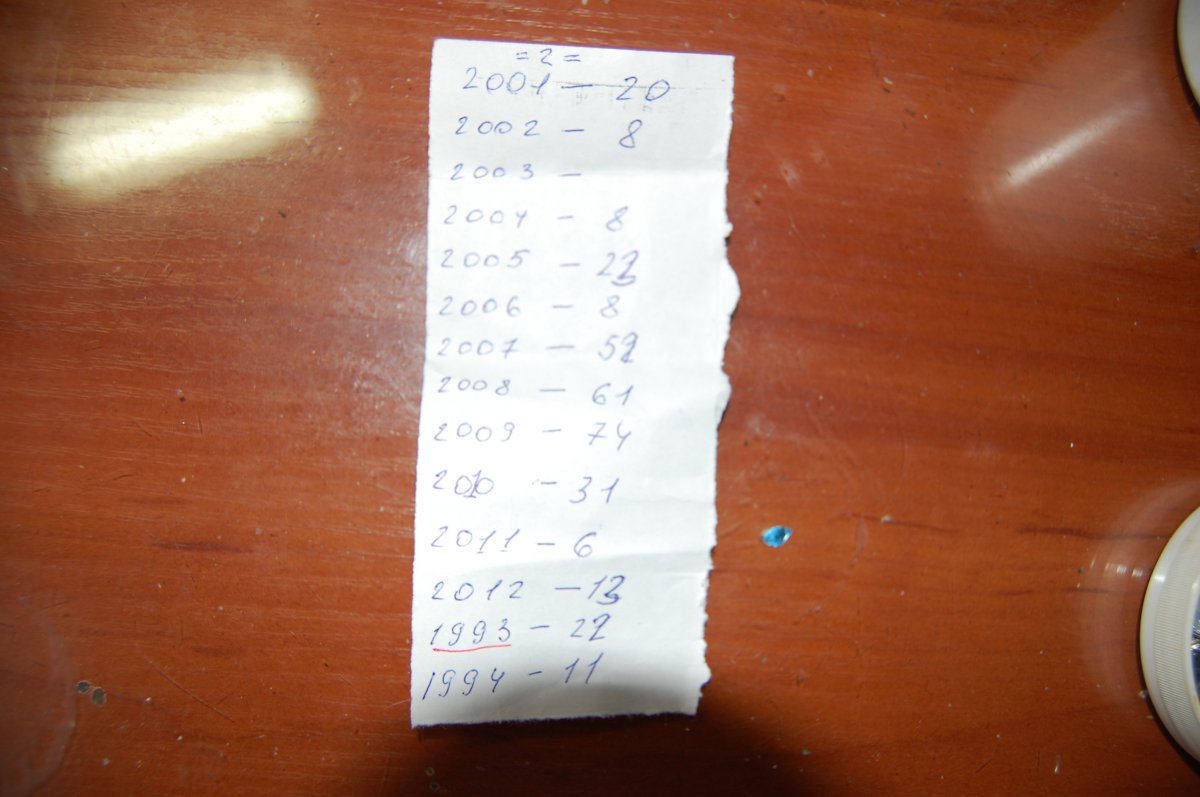 = 2 =
2001 — 20
2002 — 8
2003 —
2004 — 8
2005 — 23
2006 — 8
2007 — 52
2008 — 61
2009 — 74
2010 — 31
2011 — 6
2012 — 13
1993 — 22
1994 — 11